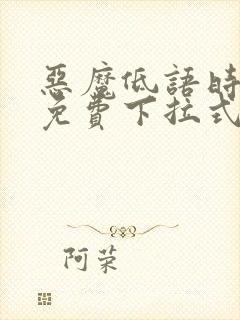 惡魔低語時
免費下拉式
阿荣